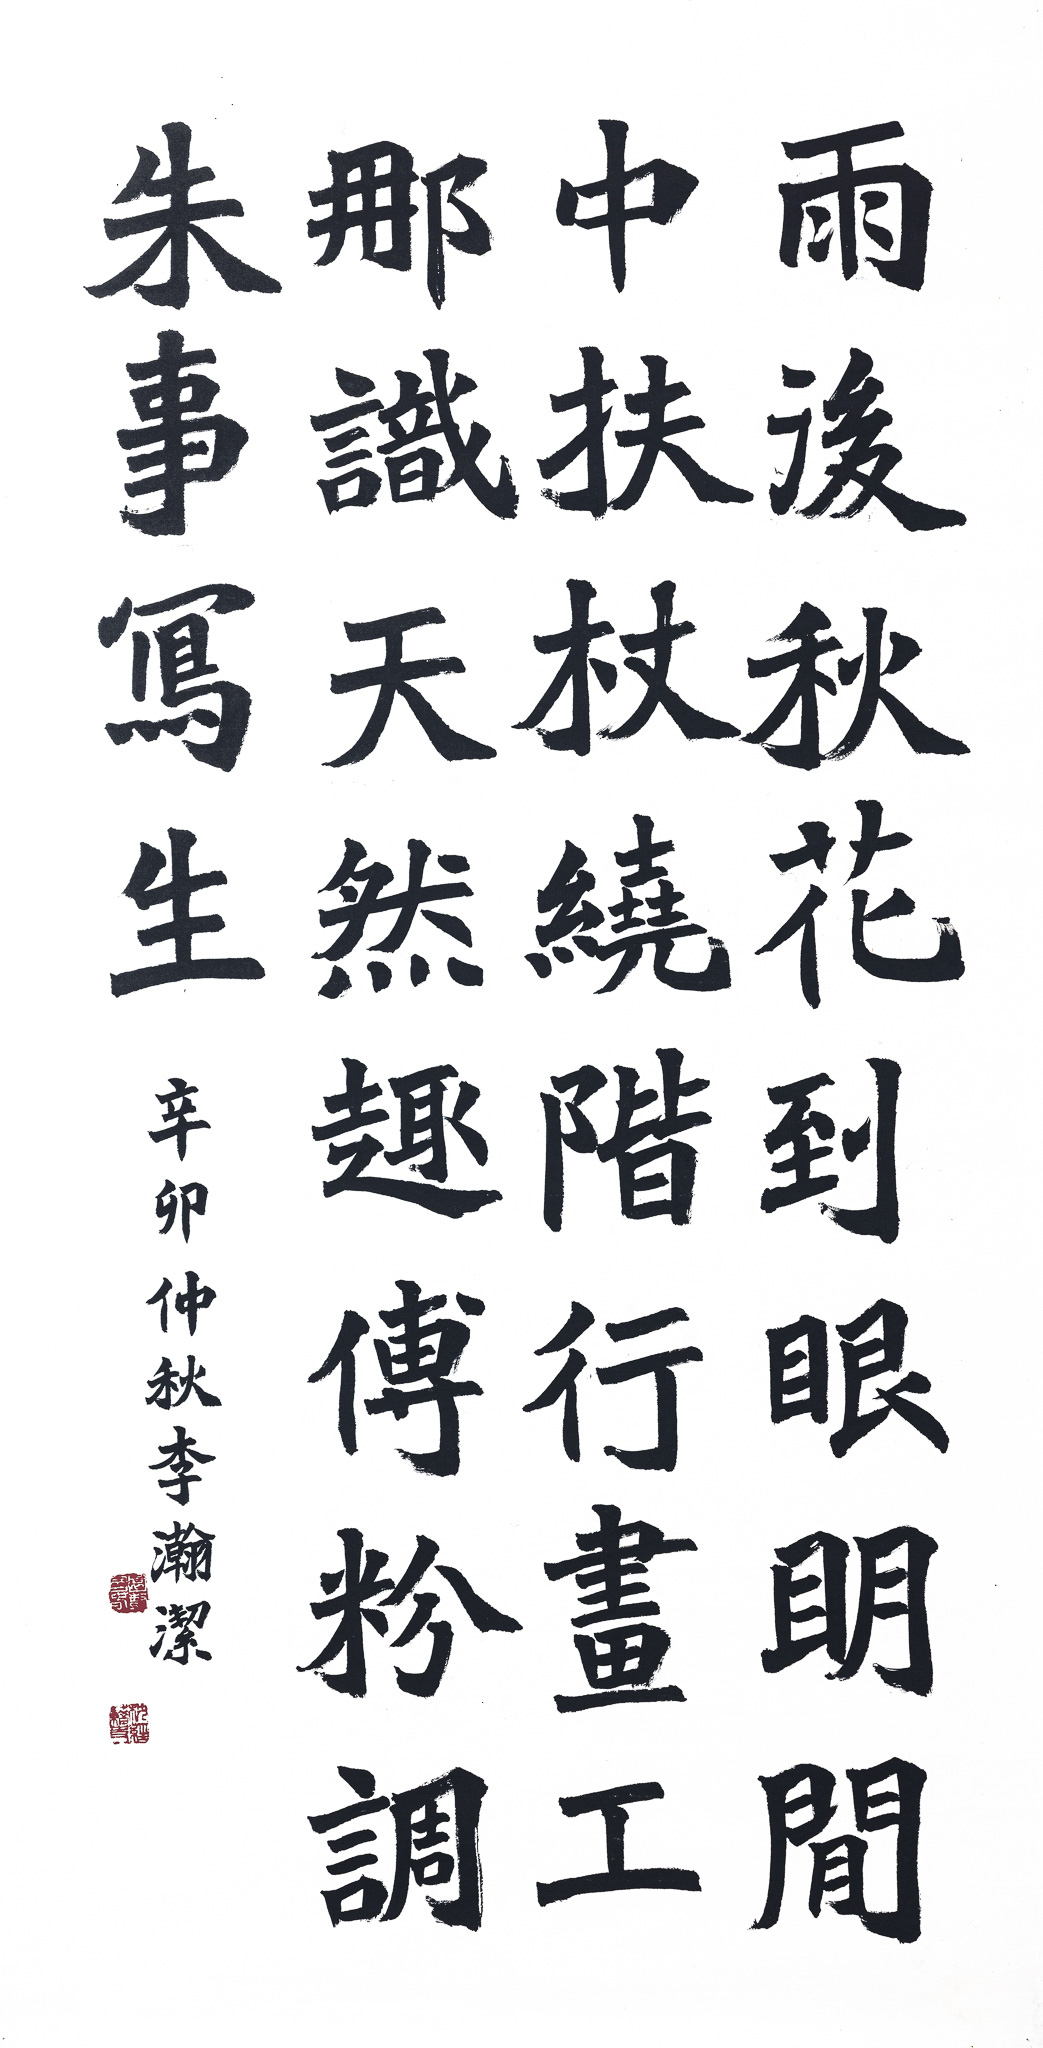 雨後秋花到眼明閒
中扶杖繞階行畫工
那識天然趣傅粉調
朱事寫生
辛卯仲秋李瀚潔